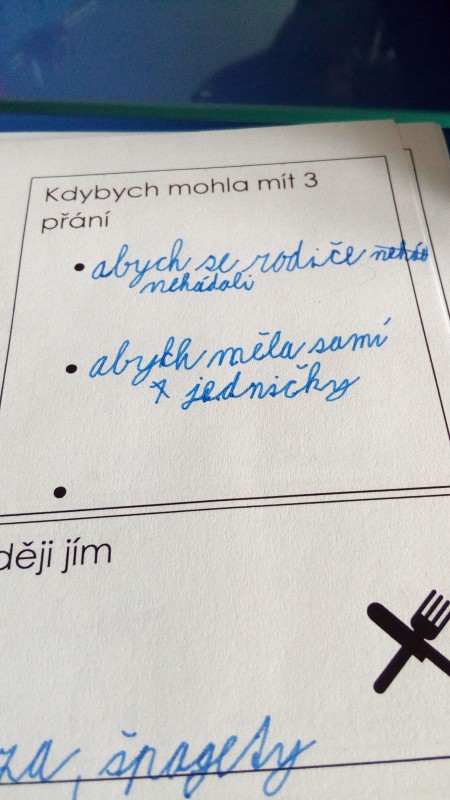 Kdybych mohla mít 3
přání
• abych se rodiče
nehádali
• abych měla samí
jedničky
•
ději jím
za, špagety